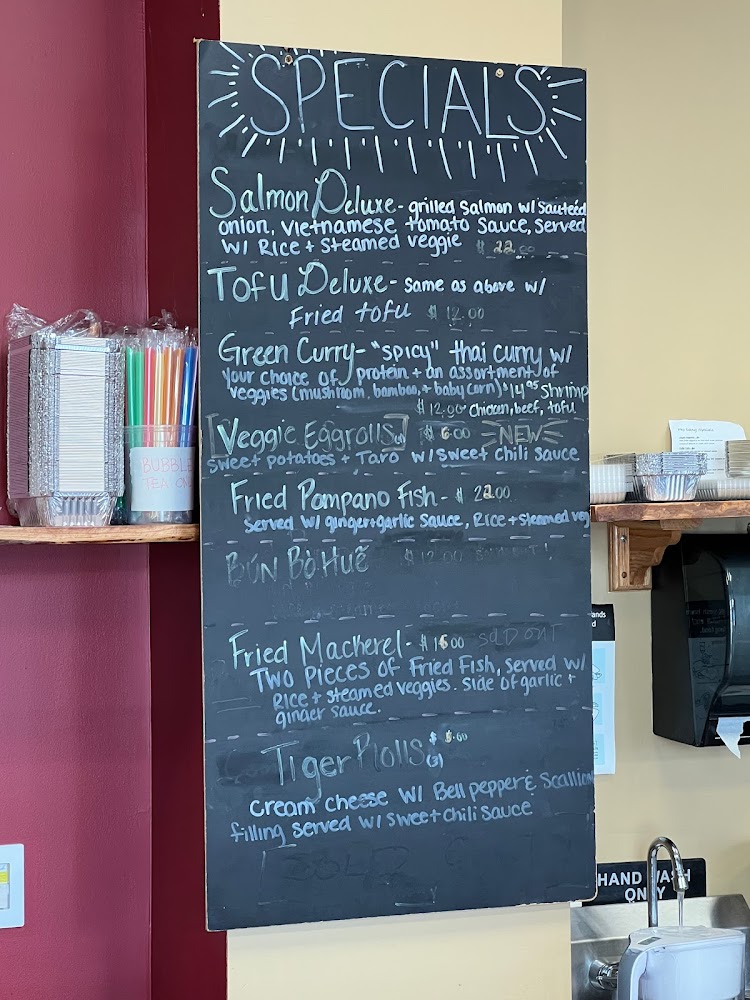 SPECIALS
Salmon Deluxe - grilled Salmon w/ Sautéed
onion, Vietnamese tomato Sauce, Served
w/ Rice + Steamed veggie $ 22.00
Tofu Deluxe - Same as above w/
Fried tofu $ 12.00
Green Curry - "spicy" thai curry w/
your choice of protein + an assortment of
veggies (mushroom, bamboo, + baby corn) $14.95 Shrimp
$ 12.00 Chicken, beef, tofu
[Veggie Eggrolls] $ 6.00 NEW
sweet potatoes + Taro w/ sweet chili sauce
Fried Pompano Fish - $ 22.00
Served w/ ginger + garlic Sauce, Rice + steamed veg
BÚN Bò Huế $12.00
Fried Mackerel - $ 16.00 sold out
Two Pieces of Fried Fish, served w/
Rice + steamed veggies. Side of garlic +
ginger sauce.
Tiger Rolls
cream cheese w/ Bell pepper & Scallion
filling served w/ sweet chili sauce
BUBBLE
TEA ONLY
HAND WASH
ONLY